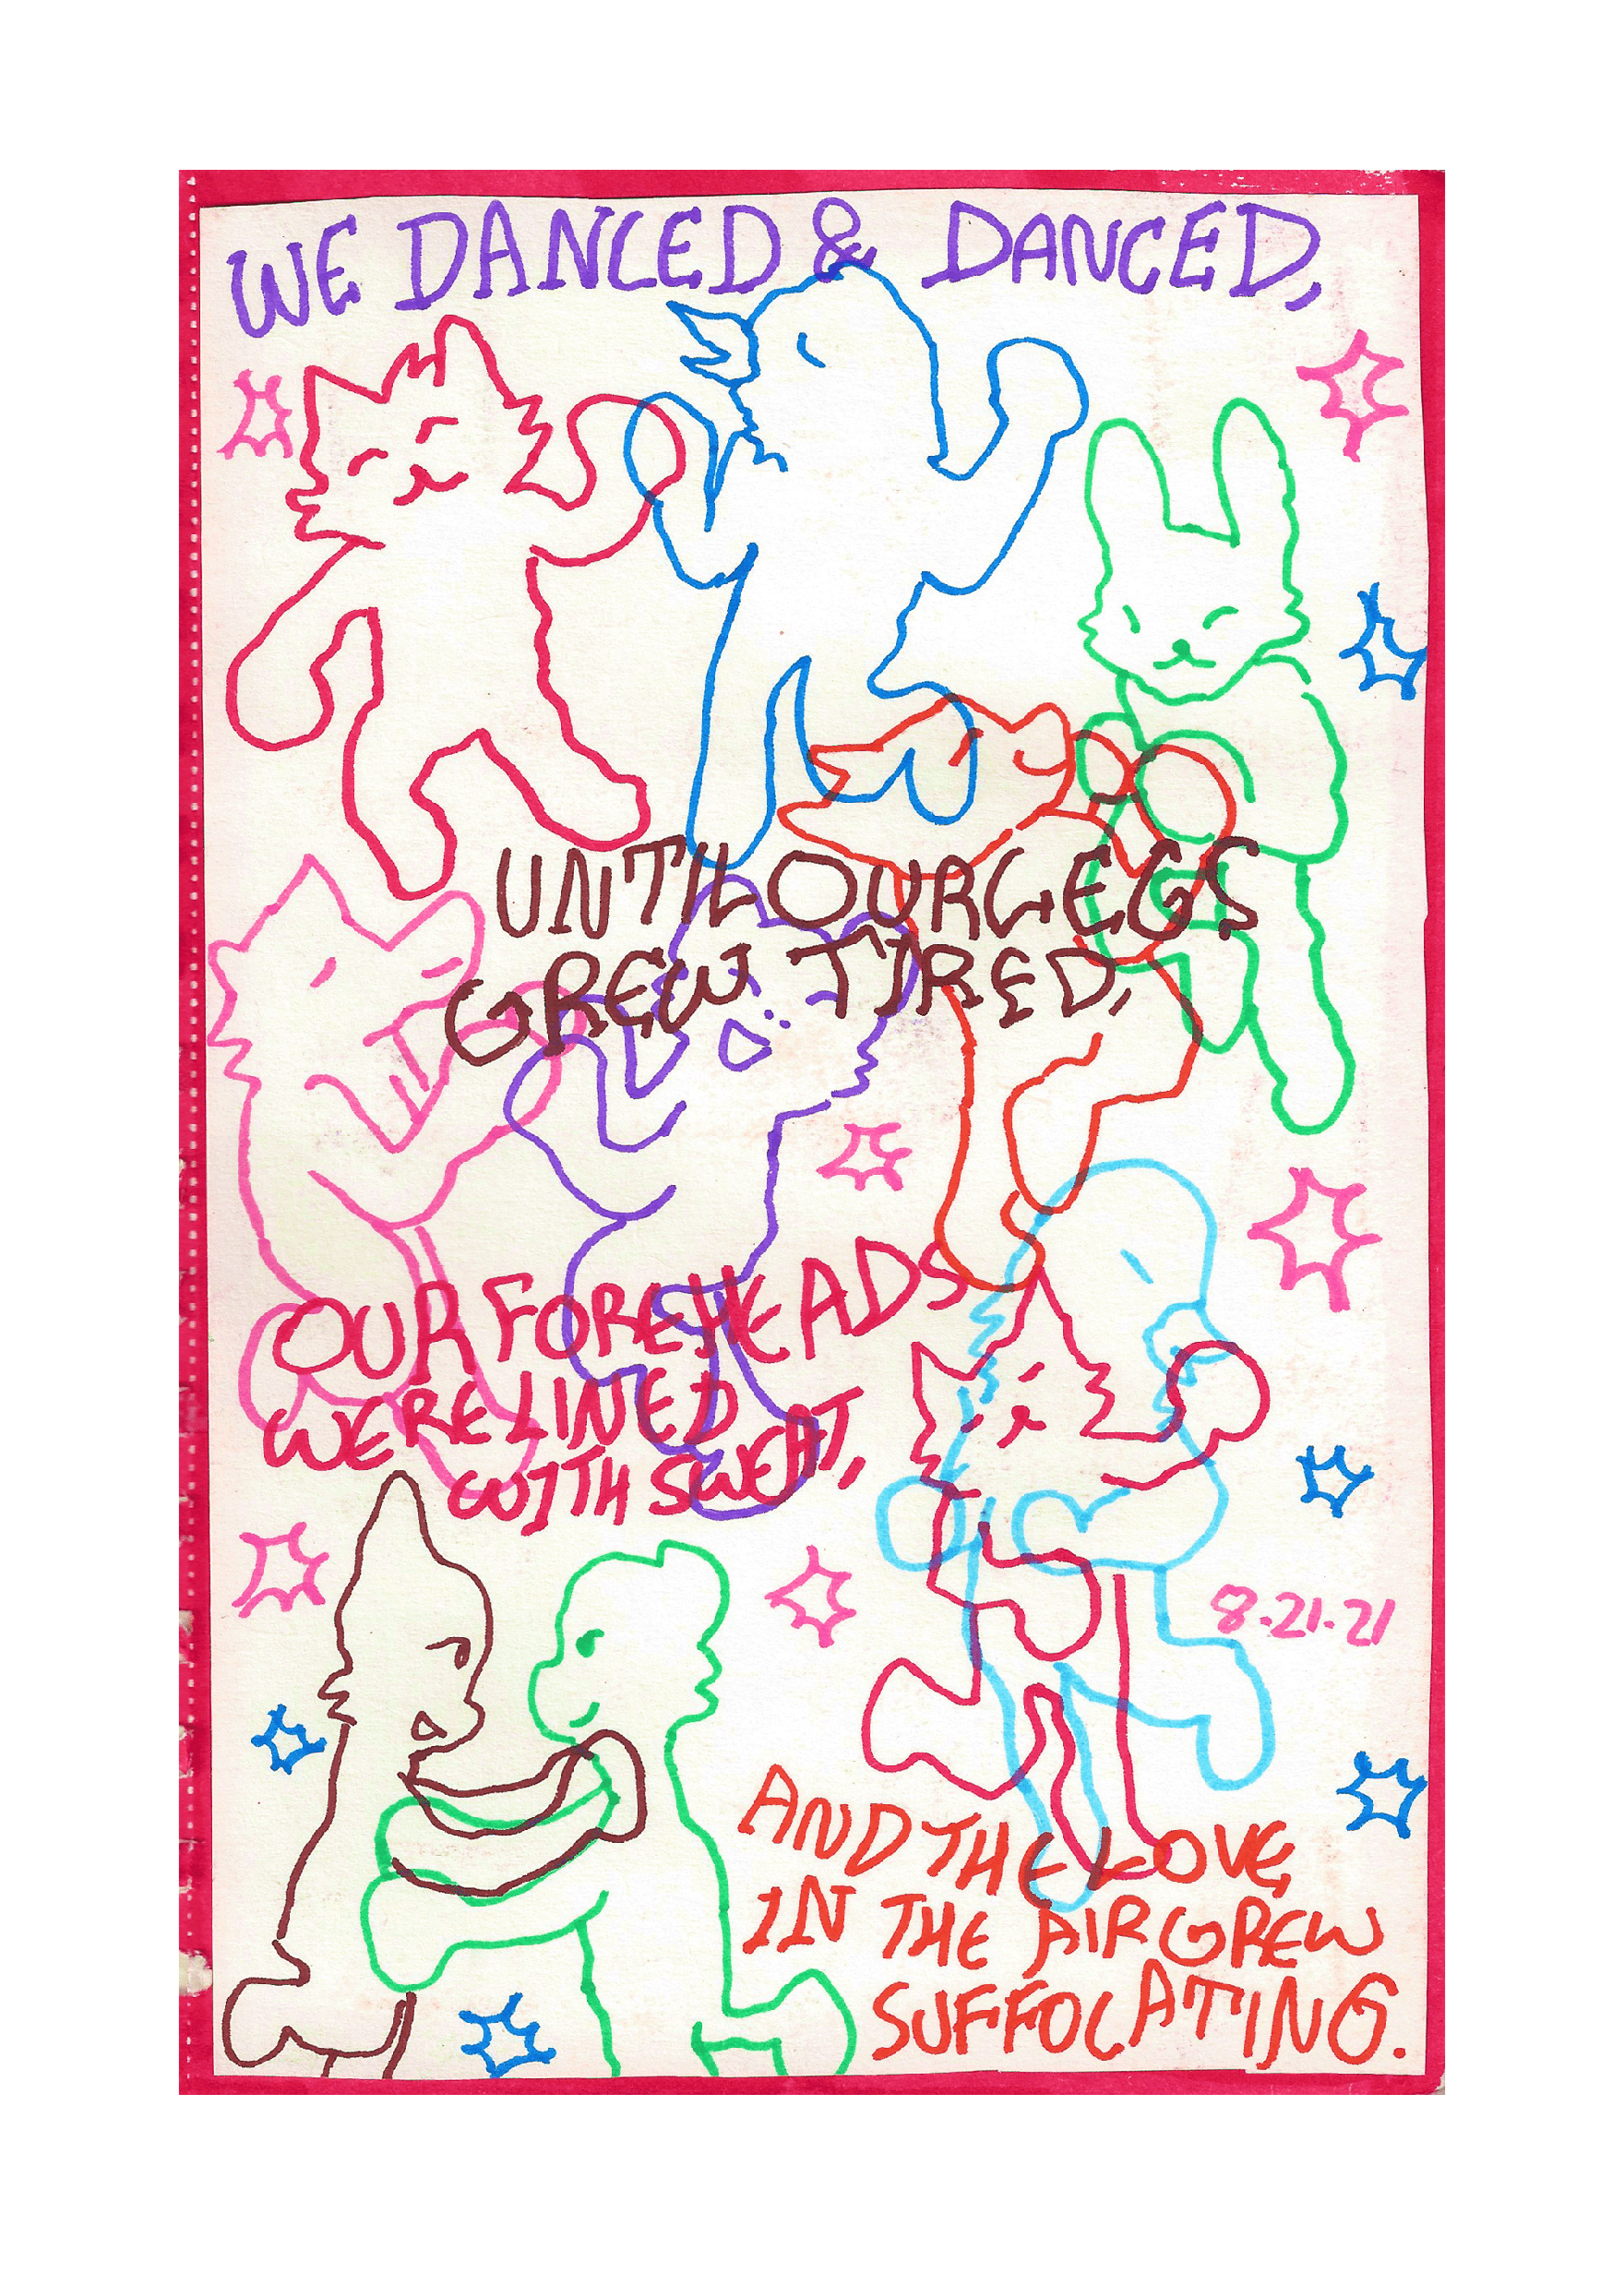 WE DANCED & DANCED,
UNTIL OUR LEGS
GREW TIRED,
OUR FOREHEADS
WERE LINED
WITH SWEAT,
8.21.21
AND THE LOVE,
IN THE AIR GREW
SUFFOCATING.